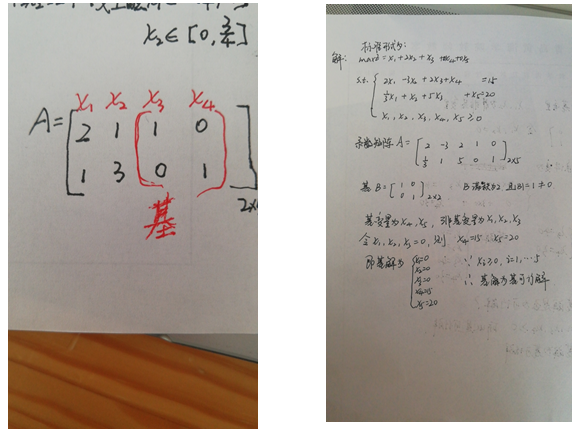 x₂∈[0,3/4]
x₁ x₂ x₃ x₄
A=[2 1 1 0
1 3 0 1]
基
标准形式为:
解: max z=x₁+2x₂+x₃+0x₄+0x₅
s.t. { 2x₁-3x₂+2x₃+x₄ =15
1/3x₁+x₂+5x₃ +x₅=20
x₁,x₂,x₃,x₄,x₅≥0
系数矩阵 A=[2 -3 2 1 0
1/3 1 5 0 1]2×5
基 B=[1 0
0 1]2×2 B满秩为2 且|B|=1≠0
基变量为x₄,x₅, 非基变量为x₁,x₂,x₃
令x₁,x₂,x₃=0,则 x₄=15 x₅=20
即基解为 { x₁=0
x₂=0
x₃=0
x₄=15
x₅=20
∵ xᵢ≥0, i=1,…5
∴ 基解为基可行解